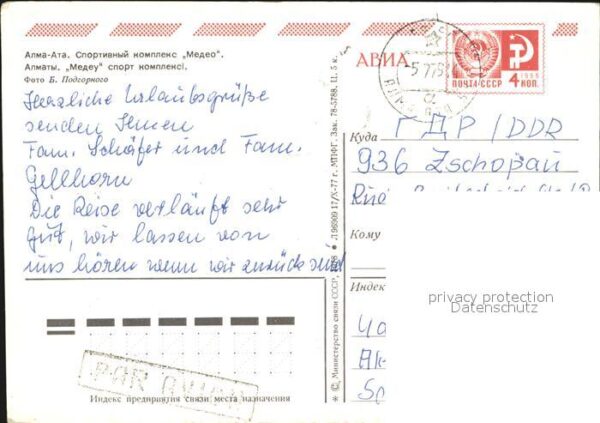 Алма-Ата. Спортивный комплекс „Медео".
Алматы. „Медеу" спорт комплексі.
Фото Б. Подгорного
Herzliche Urlaubsgrüße
senden Ihnen
Fam. Schäfer und Fam.
Gellhorn
Die Reise verläuft sehr
gut, wir lassen von
uns hören wenn wir zurück sind
Индекс предприятия связи места назначения
PAR AVION
* © Министерство связи СССР, Л 96909 17/X-77 г. МПФГ. Зак. 78-5788. Ц. 5 к.
АВИА
ПОЧТА СССР 4 КОП.
1966
Куда ГДР / DDR
936 Zschopau
Кому
Индек
privacy protection
Datenschutz